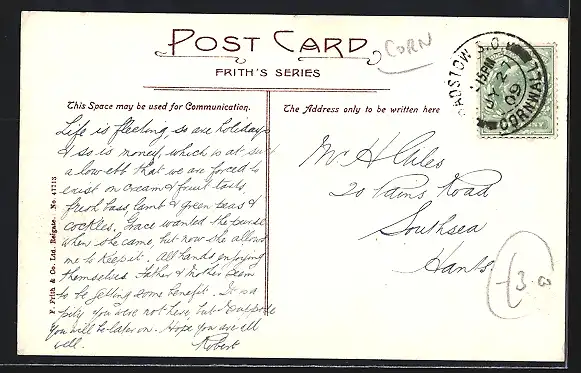 POST CARD
CORN
FRITH'S SERIES
This Space may be used for Communication.
The Address only to be written here
Life is fleeting so are holidays
& so is money, which is at such
a low ebb that we are forced to
exist on cream & fruit tarts,
fresh bass, lamb & green peas &
cockles. Grace wanted the purse
when she came, but now she allows
me to keep it. All hands enjoying
themselves Father & Mother seem
to be getting some benefit. It is a
pity you were not here, but I suppose
you will be later on. Hope you are all
well. Robert
Mr H Giles
20 Pains Road
Southsea
Hants
PADSTOW S.O.
CORNWALL
09
£3.
F. Frith & Co. Ltd., Reigate. No. 47713